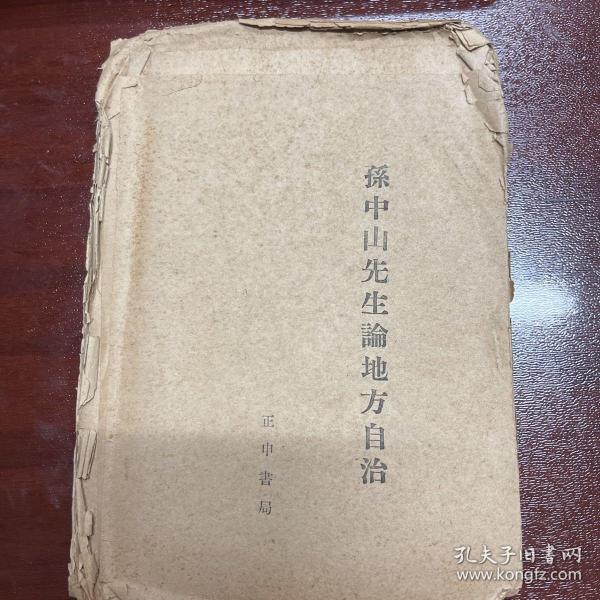 孫中山先生論地方自治
正中書局
孔夫子旧書网
www.kongfz.com